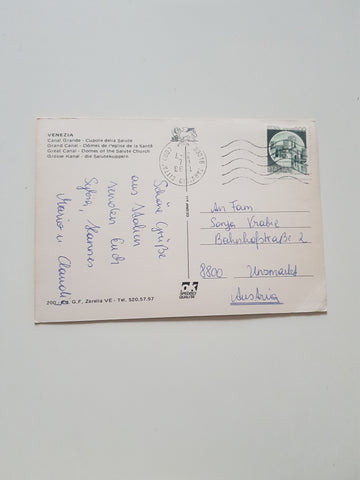 VENEZIA
Canal Grande - Cupole della Salute
Grand Canal - Dômes de l'église de la Santé
Great Canal - Domes of the Salute Church
Grosse Kanal - die Salutekuppeln
Schöne Grüße
aus Italien
senden Euch
Sylvia, Hannes
Mario u. Claudia
200
G.F. Zerella VE - Tel. 520.57.97
SPECIAL
QUALITÄT
An Fam
Sonja Vrabic
Bahnhofstraße 2
8800 Unzmarkt
Austria